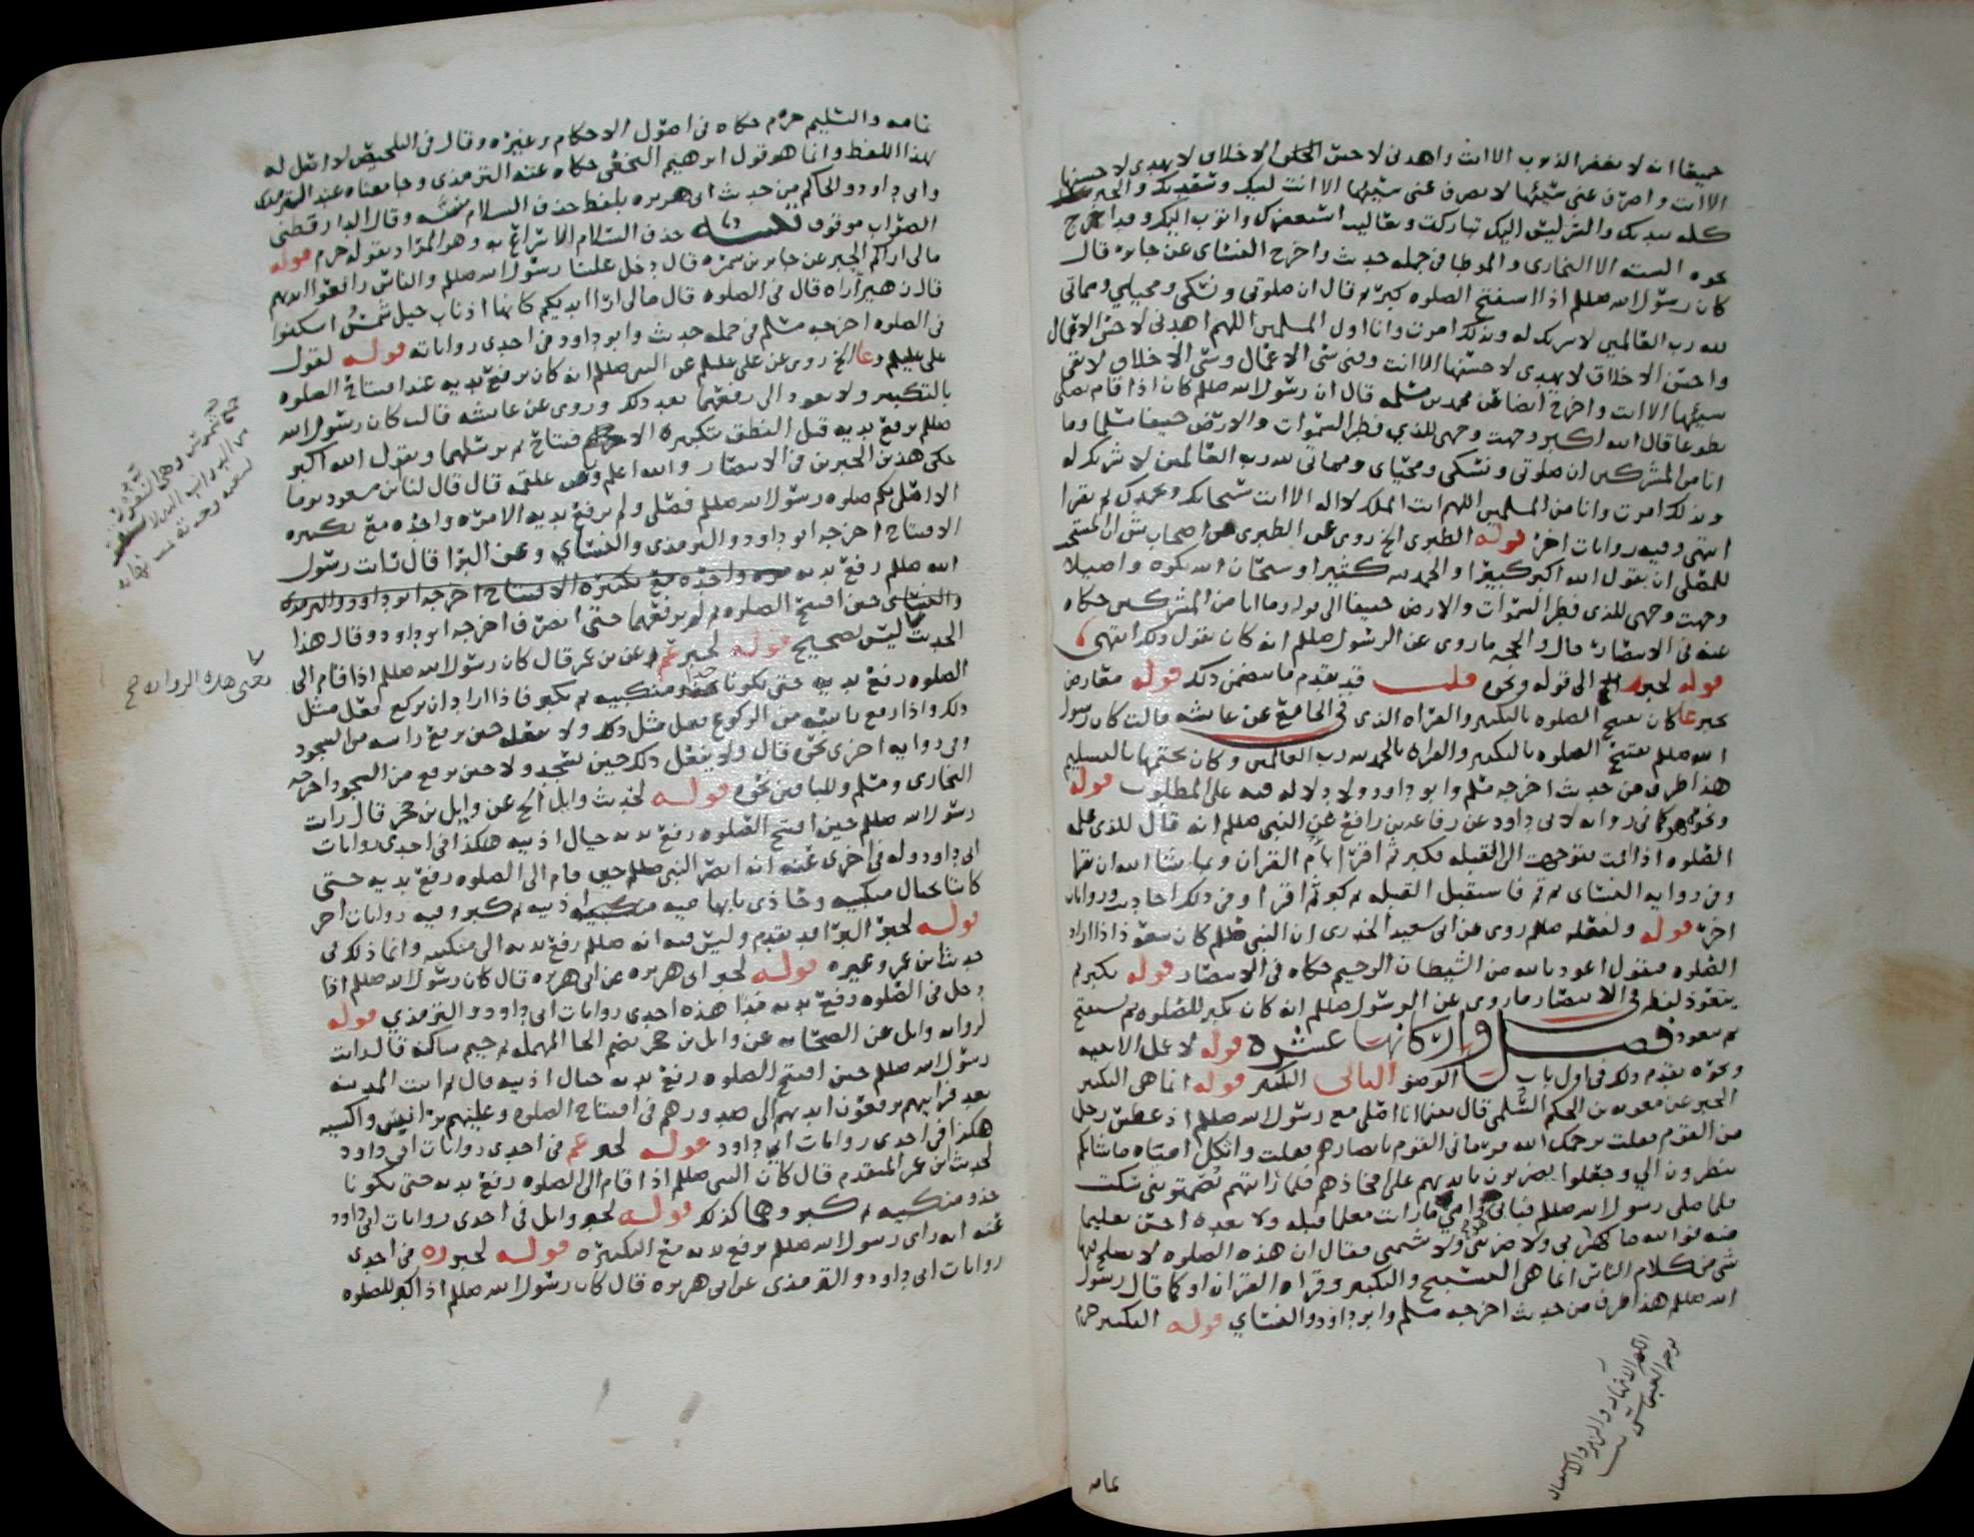 جميعا انه لا يغفر الذنوب الا انت واهدنى لاحسن الاخلاق لا يهدى لاحسنها
الا انت واصرف عنى سيئها لا يصرف عنى سيئها الا انت لبيك وسعديك والخير
كله بيديك والشر ليس اليك تباركت وتعاليت استغفرك واتوب اليك وقد اخرج
نحوه الستة الا البخارى والموطا فى جملة حديث واخرج النسائى عن جابر قال
كان رسول الله صللم اذا استفتح الصلوه كبر ثم قال ان صلوتى ونسكى ومحياى ومماتى
لله رب العالمين لا شريك له وبذلك امرت وانا اول المسلمين اللهم اهدنى لاحسن الاعمال
واحسن الاخلاق لا يهدى لاحسنها الا انت وقنى سئ الاعمال وسئ الاخلاق لا يقى
سيئها الا انت واخرج ايضا عن محمد بن مسلمه قال ان رسول الله صللم كان اذا قام يصلى
تطوعا قال الله اكبر وجهت وجهى للذي فطر السموات والارض حنيفا مسلما وما
انا من المشركين ان صلوتى ونسكى ومحياى ومماتى لله رب العالمين لا شريك له
وبذلك امرت وانا من المسلمين اللهم انت الملك لا اله الا انت سبحانك وبحمدك ثم يقرا
انتهى وفيه روايات اخر قوله الطبرى الخ روى عن الطبرى من اصحاب ش ان المستحب
للمصلى ان يقول الله اكبر كبيرا والحمد لله كثيرا وسبحان الله بكره واصيلا
وجهت وجهى للذى فطر السموات والارض حنيفا الى قوله وما انا من المشركين حكاه
عنه فى الانتصار قال والحجه ما روى عن الرسول صللم انه كان يقول ذلك انتهى
قوله لخبر الخ الى قوله ونحوه قلت قد تقدم ما يتضمن ذلك قوله معارض
بخبر عا كان يفتتح الصلوه بالتكبير والقراه الذى فى الجامع عن عايشه قالت كان رسول
الله صللم يفتتح الصلوه بالتكبير والقراه بالحمد لله رب العالمين وكان يختمها بالتسليم
هذا طرف من حديث اخرجه مسلم وابو داود ولا دلاله فيه على المطلوب قوله
ونحوه كما فى روايه لابى داود عن رفاعه بن رافع عن النبى صللم انه قال للذى علمه
الصلوه اذا قمت فتوجهت الى القبله فكبر ثم اقرا بام القران وبما شا الله ان تقرا
وفى روايه النسائى ثم قم فاستقبل القبله ثم كبر ثم اقرا وفى ذلك احاديث وروايات
اخر قوله ولفعله صللم روى عن ابى سعيد الخدرى ان النبى صللم كان يتعوذ اذا اراد
الصلوه فيقول اعوذ بالله من الشيطان الرجيم حكاه فى الانتصار قوله يكبر ثم
يتعوذ لفظه فى الانتصار ما روى عن الرسول صللم انه كان يكبر للصلوه ثم يستفتح
ثم يتعوذ فصل واركانها عشره قوله لا عمل الا بنيه
ونحوه تقدم ذلك فى اول باب الوضو الثانى التكبير قوله انما هى التكبير
الخبر عن معويه بن الحكم السلمى قال بينما انا اصلى مع رسول الله صللم اذ عطس رجل
من القوم فقلت يرحمك الله فرمانى القوم بابصارهم فقلت واثكل امياه ما شانكم
تنظرون الي وجعلوا يضربون بايديهم على افخاذهم فلما رايتهم يصمتوننى سكت
فلما صلى رسول الله صللم فبابى وامى ما رايت معلما قبله ولا بعده احسن تعليما
منه فوالله ما كهرنى ولا ضربنى ولا شتمنى فقال ان هذه الصلوه لا يصلح فيها
شى من كلام الناس انما هى التسبيح والتكبير وقراه القران او كما قال رسول
الله صللم هذا طرف من حديث اخرجه مسلم وابو داود والنسائي قوله التكبير جزم
الكهر الانتهار والزبر والاستقبال
بوجه العبس
تمامه والتسليم جزم حكاه فى اصول الاحكام وغيره وقال فى التلخيص لا اصل له
بهذا اللفظ وانما هو قول ابرهيم النخعى حكاه عنه الترمذى وجا معناه عند الترمذى
وابى داود والحاكم من حديث ابى هريره بلفظ حذف السلام سنه وقال الدارقطنى
الصواب موقوف حذف السلام الاسراع به وهو المراد بقوله جزم قوله
مالى اراكم الخبر عن جابر بن سمره قال دخل علينا رسول الله صللم والناس رافعوا ايديهم
قال زهير اراه قال فى الصلوه قال مالى ارا ايديكم كانها اذناب خيل شمس اسكنوا
فى الصلوه اخرجه مسلم فى جمله حديث وابو داود فى احدى رواياته قوله لقول
على عليلم وعا الخ روى عن على عليلم عن النبى صللم انه كان يرفع يديه عند افتتاح الصلوه
بالتكبير ولا يعود الى رفعهما بعد ذلك وروى عن عايشه قالت كان رسول الله
صللم يرفع يديه قبل النطق بتكبيره الافتتاح ثم يرسلهما ويقول الله اكبر
حكى هذين الخبرين فى الانتصار والله اعلم وعن علقمه قال قال لنا ابن مسعود يوما
الا اصلى بكم صلوه رسول الله صللم فصلى ولم يرفع يديه الا مره واحده مع تكبيره
الافتتاح اخرجه ابو داود والترمذى والنسائي وعن البرا قال رايت رسول
الله صللم رفع يديه مره واحده مع تكبيره الافتتاح اخرجه ابو داود والترمذى
والنسائى حين افتتح الصلوه ثم لم يرفعهما حتى انصرف اخرجه ابو داود وقال هذا
الحديث ليس بصحيح قوله لخبر عم عن بن عمر قال كان رسول الله صللم اذا قام الى
الصلوه رفع يديه حتى يكونا حذو منكبيه ثم يكبر فاذا اراد ان يركع فعل مثل
ذلك واذا رفع راسه من الركوع فعل مثل ذلك ولا يفعله حين يرفع راسه من السجود
وفى روايه اخرى نحوه قال ولا يفعل ذلك حين يسجد ولا حين يرفع من السجود اخرجه
البخارى ومسلم وللباقين نحوه قوله لحديث وايل الخ عن وايل بن حجر قال رايت
رسول الله صللم حين افتتح الصلوه رفع يديه حيال اذنيه هكذا فى احدى روايات
ابى داود وله فى اخرى عنه انه ابصر النبى صللم حين قام الى الصلوه رفع يديه حتى
كانتا بحيال منكبيه وحاذى بابهاميه اذنيه ثم كبر وفيه روايات اخر
قوله لخبر البرا قد تقدم وليس فيه انه صللم رفع يديه الى منكبيه وانما ذلك فى
حديث ابن عمر وغيره قوله لخبر ابى هريره عن ابى هريره قال كان رسول الله صللم اذا
دخل فى الصلوه رفع يديه مدا هذه احدى روايات ابى داود والترمذي قوله
لروايه وايل عن الصحابه عن وايل بن حجر بضم الحا المهمله ثم جيم ساكنه قال رايت
رسول الله صللم حين افتتح الصلوه رفع يديه حيال اذنيه قال ثم اتيت المدينه
بعد فرايتهم يرفعون ايديهم الى صدورهم فى افتتاح الصلوه وعليهم برانس واكسيه
هكذا فى احدى روايات ابى داود قوله لخبر عم فى احدى روايات ابى داود
لحديث ابن عمر المتقدم قال كان النبى صللم اذا قام الى الصلوه رفع يديه حتى يكونا
حذو منكبيه ثم كبر وهما كذلك قوله لخبر وايل فى احدى روايات ابى داود
عنه انه راى رسول الله صللم يرفع يديه مع التكبيره قوله لخبر ره فى احدى
روايات ابى داود والترمذى عن ابى هريره قال كان رسول الله صللم اذا كبر للصلوه
جمع شموس وهى النفور
من الدواب الذى لا
لشغبه وحدته نهايه
يعنى هذه الروايه صح
تمامه